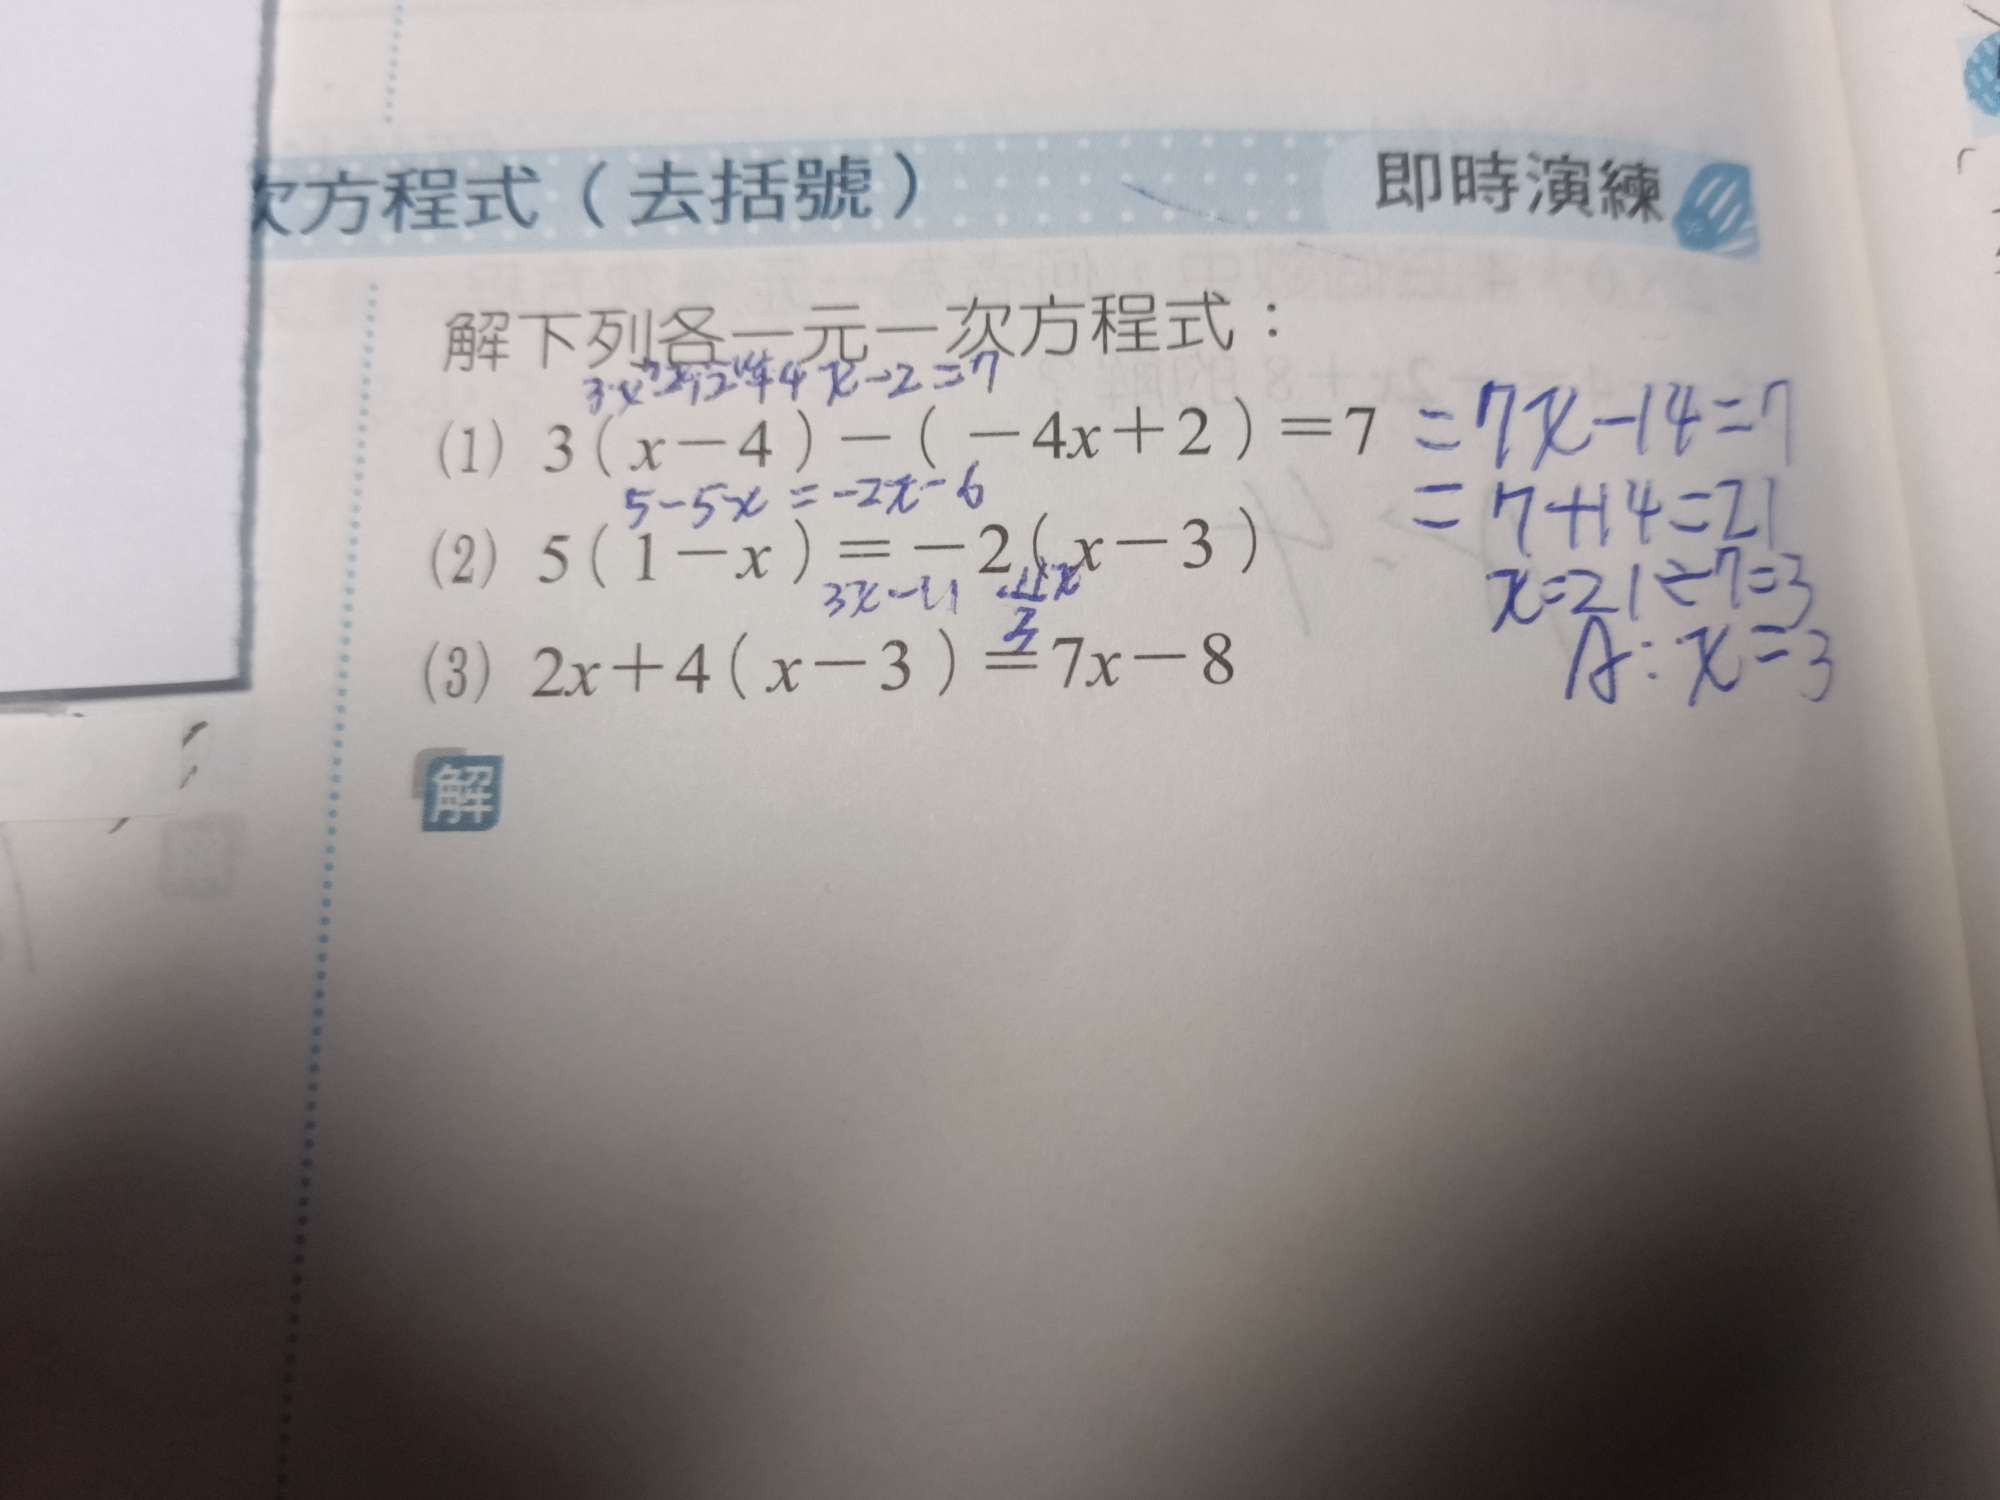 次方程式（去括號）
即時演練
解下列各一元一次方程式：
+4x-2=7
(1) 3(x-4)-(-4x+2)=7
=7x-14=7
5-5x=-2x-6
=7+14=21
(2) 5(1-x)=-2(x-3)
x=21÷7=3
3x-11
(3) 2x+4(x-3)=7x-8
A:x=3
解